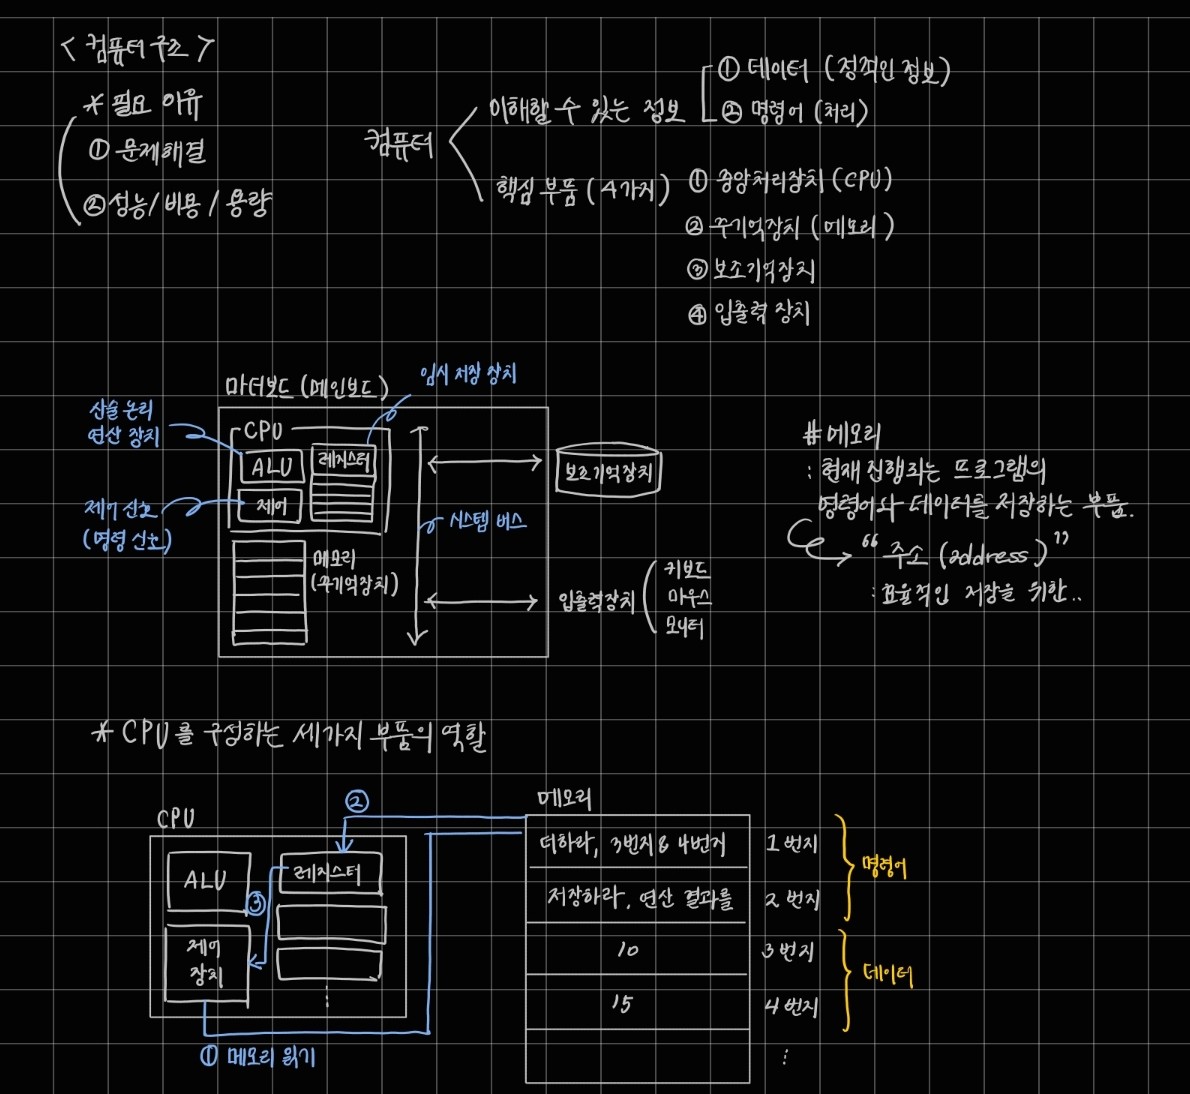 < 컴퓨터 구조 >
* 필요 이유
① 문제해결
② 성능 / 비용 / 용량
컴퓨터
이해할 수 있는 정보
① 데이터 (정적인 정보)
② 명령어 (처리)
핵심 부품 (4가지)
① 중앙처리장치 (CPU)
② 주기억장치 (메모리)
③ 보조기억장치
④ 입출력 장치
마더보드 (메인보드)
임시 저장 장치
산술 논리
연산 장치
CPU
ALU
레지스터
제어
제어 신호
(명령 신호)
시스템 버스
메모리
(주기억장치)
보조기억장치
입출력장치
키보드
마우스
모니터
# 메모리
: 현재 진행되는 프로그램의
명령어와 데이터를 저장하는 부품.
“ 주소 (address) ”
: 효율적인 저장을 위한..
* CPU를 구성하는 세가지 부품의 역할
CPU
ALU
레지스터
제어
장치
⋮
②
③
① 메모리 읽기
메모리
더하라, 3번지 & 4번지 1번지
저장하라, 연산 결과를 2번지
명령어
10 3번지
15 4번지
데이터
⋮